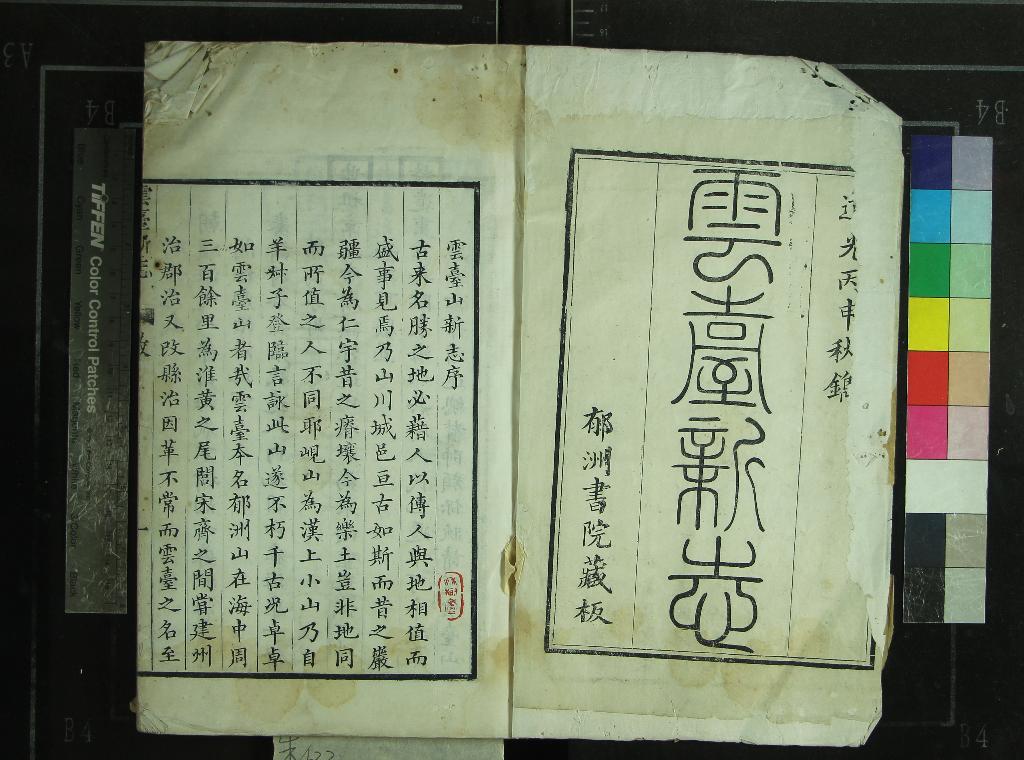 道光丙申秋鐫
雲臺新志
郁洲書院藏板
雲臺山新志序
古来名勝之地必藉人以傳人與地相值而
盛事見焉乃山川城邑亘古如斯而昔之巖
疆今為仁宇昔之瘠壤今為樂土豈非地同
而所值之人不同耶峴山為漢上小山乃自
羊叔子登臨言詠此山遂不朽千古況卓卓
如雲臺山者哉雲臺本名郁洲山在海中周
三百餘里為淮黃之尾閭宋齊之間嘗建州
治郡治又改縣治因革不常而雲臺之名至
雲臺新志
TIFFEN Color Control Patches
Blue
Cyan
Green
Yellow
Red
Black
B4
B4
B4
B4
A3